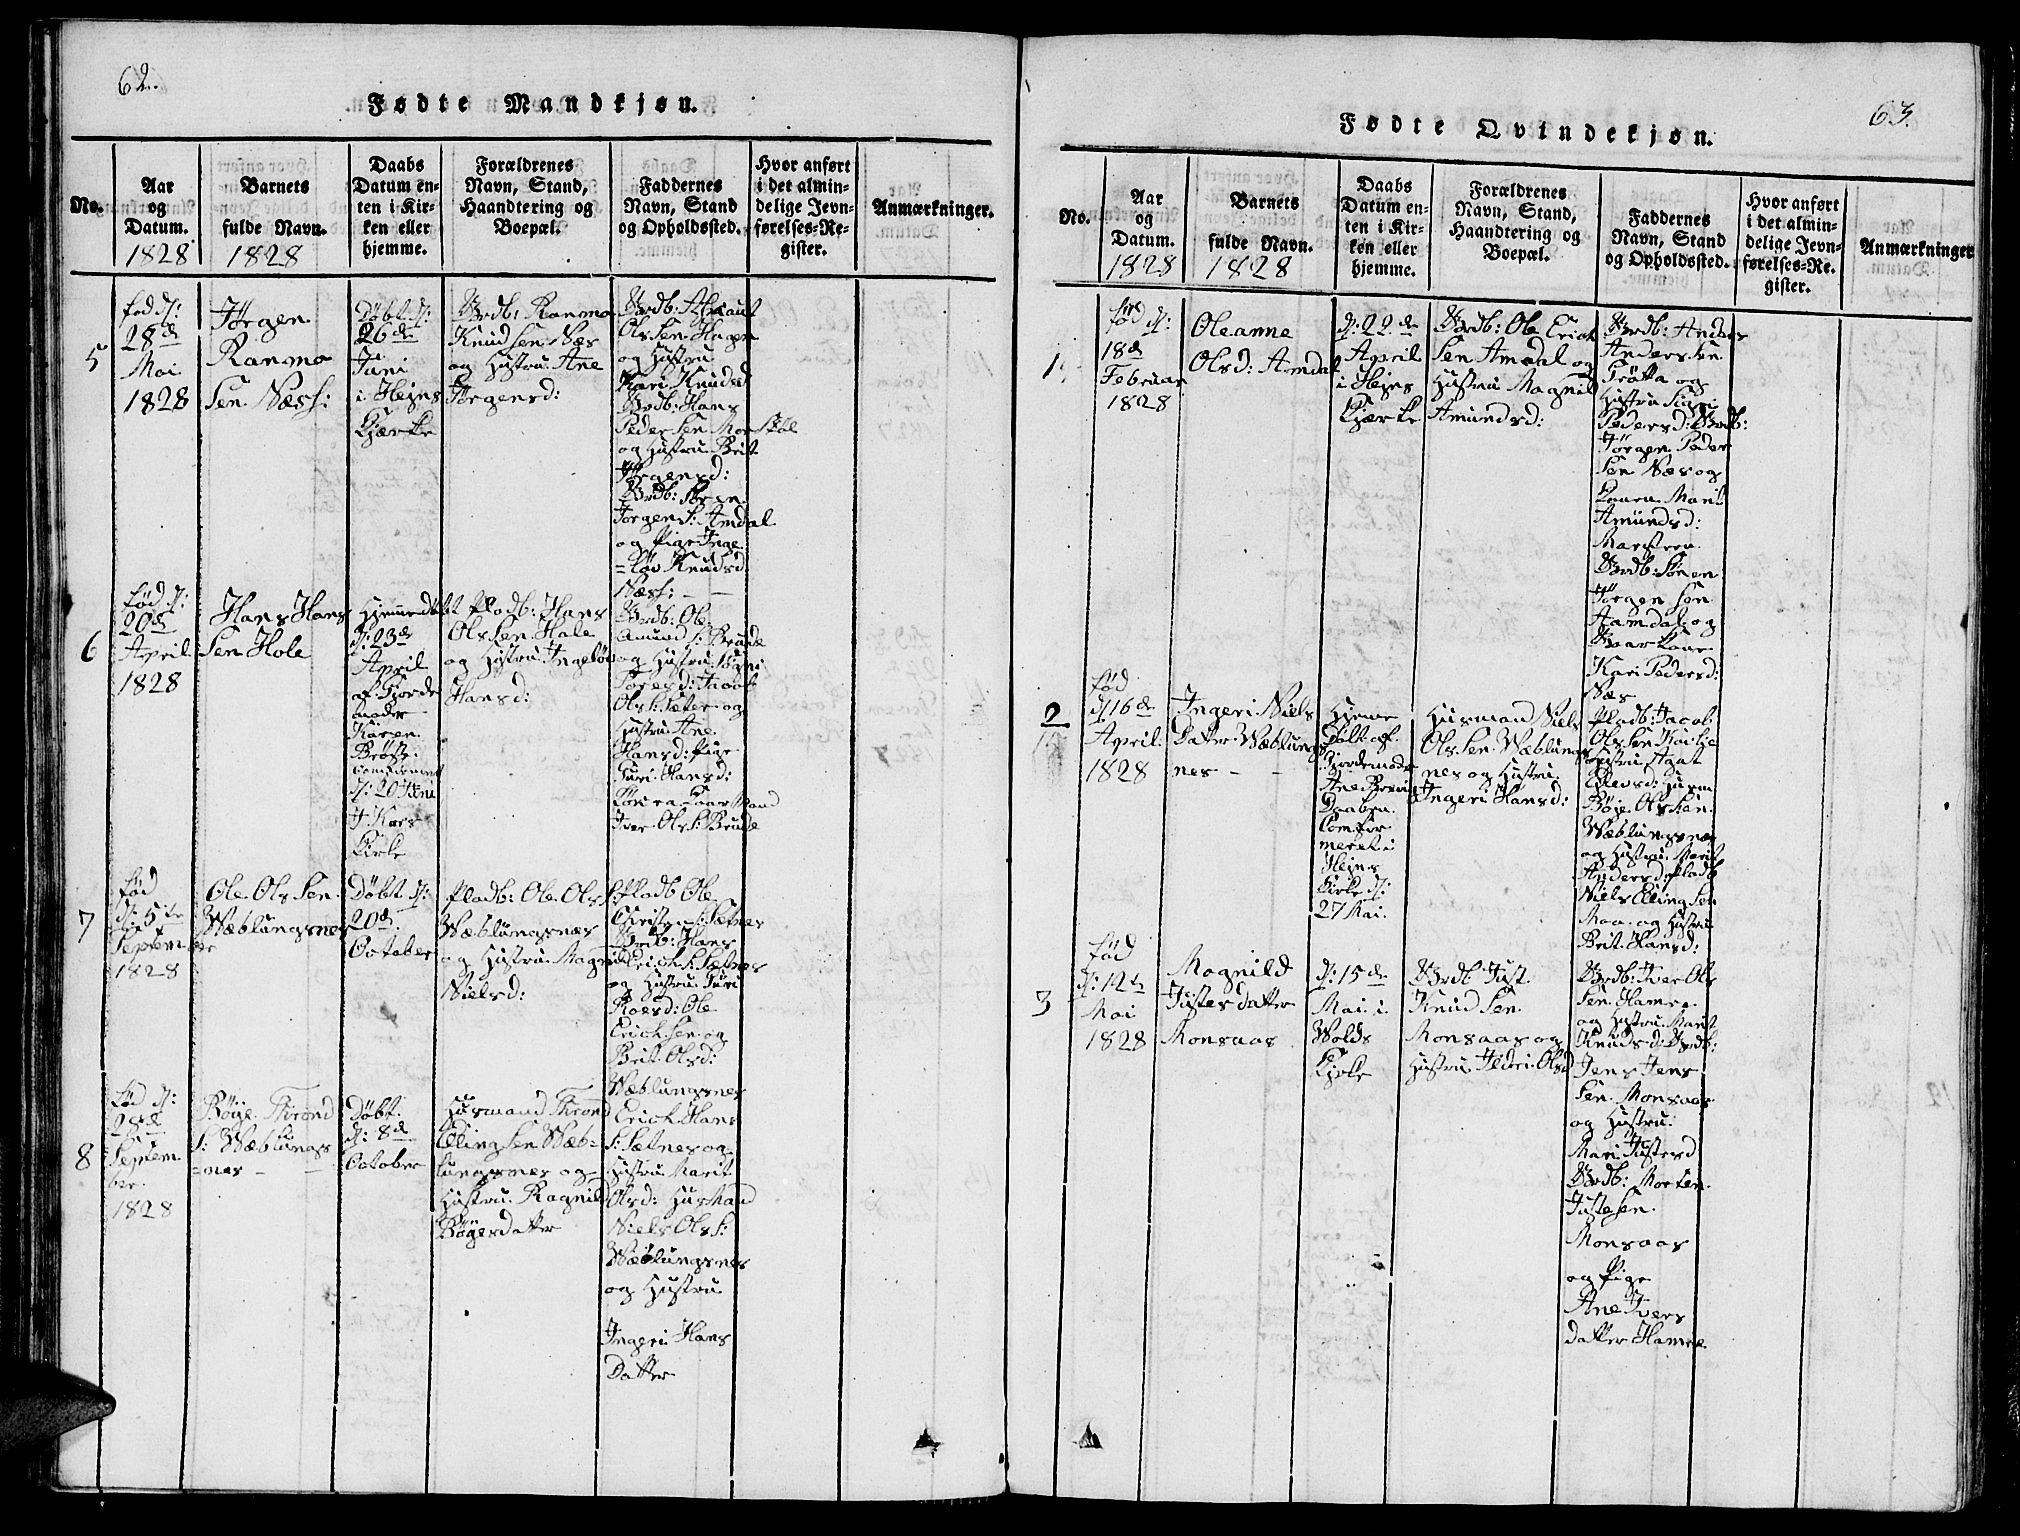 62.
Fødte Mandkjøn.
No.
Aar
og
Datum.
1828
Barnets
fulde Navn.
1828
Daabs
Datum en-
ten i Kir-
ken eller
hjemme.
Forældrenes
Navn, Stand,
Haandtering og
Boepæl.
Faddernes
Navn, Stand
og Opholdssted.
Hvor anført
i det almin-
delige Jevn-
førelses-Re-
gister.
Anmærkninger.
5
fød d:
28de
Mai
1828
Jørgen
Ranmo
Sen Næss:
Døbt d:
26de
Juni
i Hejns
Kjærke
Brdb: Ranmo
Knudsen Næs
og Hustru Ane
Jørgensd:
Ols Sen Hagen
og Hustru
Kari Knudsd
Brdb: Hans
Peder Sen
og Hustru Brit
Jørgensd:
Brdb: Søren
Jørgens: Amdal
og Pige Inge
=løv Knudsd
Næss:
6
fød d:
20de
April
1828
Hans Hans
Sen Hole
Hjemmedøbt
d: 23de
April
af Gjorde
moder
Karen
Brøste
d: 20 June
I Kors
Kirke
Pladb: Hans
Ols Sen Hole
og Hustru Ingeløv
Hansd:
Brdb: Ole
Amund S: Brude
og Hustru
Ols S: Sæter og
Hustru Ane
Hansd: Pige
Guri Hansd:
Iver Ols S: Brude
7
fød
d: 5te
Septem
ber
1828
Ole Ols Sen
Wæblungsnes
Døbt d:
20de
October
Pladb: Ole Ols S:
Wæblungsnes
og Hustru Magnild
Nielsd:
Pladb Ole
Christen S: Sætnes
Brdb: Hans
Erich S: Sætnes
og Hustru Guri
Roesd: Ole
Erich Sen og
Brit Olsd:
Wæblungsnes
8
fød d:
28de
Septem
ber
1828
Bøye Thrond
S: Wæblungs
=nes
Døbt
d: 8de
October
Husmand Thrond
Elling Sen Wæb-
lungsnes og
Hustru Ragnild
Bøyesdatter
Erich Hans
S: Sætnes og
Hustru Marit
Olsd: Husmand
Niels Ols S:
Wæblungsnes
og Hustru
Ingeri Hans
Datter
63.
Fødte Qvindekjøn.
No.
Aar
og
Datum.
1828
Barnets
fulde Navn.
1828
Daabs
Datum en-
ten i Kir-
ken eller
hjemme.
Forældrenes
Navn, Stand,
Haandtering og
Boepæl.
Faddernes
Navn, Stand
og Opholdssted.
Hvor anført
i det almin-
delige Jevn-
førelses-Re-
gister.
Anmærkninger
1
fød d:
18de
Februar
1828
Oleanne
Olsd: Amdal
d: 22de
April
i Hejns
Kjærke
Brdb: Ole Erich
Sen Amdal og
Hustru Magnil
Amundsd:
Brdb: Anders
Anders Sen
Grøtta og
Hustru
Pedersd: Brdb:
Jørgen Peder
Sen Næs og
Konen Marit
Amundsd:
Marsteen
Brdb: Sören
Jørgen Sen
Aamdal og
Kari Pedersd:
Næs
2
fød
d 16de
April
1828
Ingeri Niels
Datter Wæblungs
nes
Hjeme
døbt af
Gjordemoder
Ane
Daaben
Comfor
meret i
Hejns
Kirke d:
27 Mai.
Husmand Niels
Ols Sen Wæblungs
nes og Hustru
Ingeri Hansd:
Pladb: Jacob
Ols Sen
Hustru Agat
Husm
Bøje Ols Sen
Wæblungsnes
og Hustru Marit
Andersd: Pladb
Niels Elling Sen
Moa og Hustru
Brit Hansd:
3
fød
d: 12te
Mai
1828
Magnild
Justesdatter
Monsaas
d: 15de
Mai i
Wolds
Kjrke
Brdb: Just
Knud Sen
Monsaas og
Hustru Ildri Olsd
Brdb: Iver Ols
Sen Hamre
og Hustru Marit
Knudsd: Brdb:
Jens Jens
Sen Monsaas
og Hustru
Mari Justesd
Brdb: Morten
Justesen
Monsaas
og Pige
Ane Ivers
datter Hamre